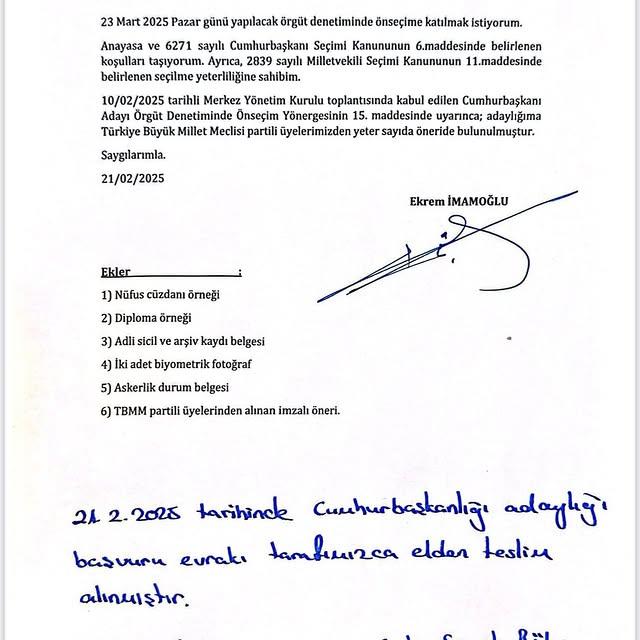 23 Mart 2025 Pazar günü yapılacak örgüt denetiminde önseçime katılmak istiyorum.
Anayasa ve 6271 sayılı Cumhurbaşkanı Seçimi Kanununun 6.maddesinde belirlenen
koşulları taşıyorum. Ayrıca, 2839 sayılı Milletvekili Seçimi Kanununun 11.maddesinde
belirlenen seçilme yeterliliğine sahibim.
10/02/2025 tarihli Merkez Yönetim Kurulu toplantısında kabul edilen Cumhurbaşkanı
Adayı Örgüt Denetiminde Önseçim Yönergesinin 15. maddesinde uyarınca; adaylığıma
Türkiye Büyük Millet Meclisi partili üyelerimizden yeter sayıda öneride bulunulmuştur.
Saygılarımla.
21/02/2025
Ekrem İMAMOĞLU
Ekler :
1) Nüfus cüzdanı örneği
2) Diploma örneği
3) Adli sicil ve arşiv kaydı belgesi
4) İki adet biyometrik fotoğraf
5) Askerlik durum belgesi
6) TBMM partili üyelerinden alınan imzalı öneri.
21.2.2025 tarihinde Cumhurbaşkanlığı adaylığı
başvuru evrakı tarafımızca elden teslim
alınmıştır.